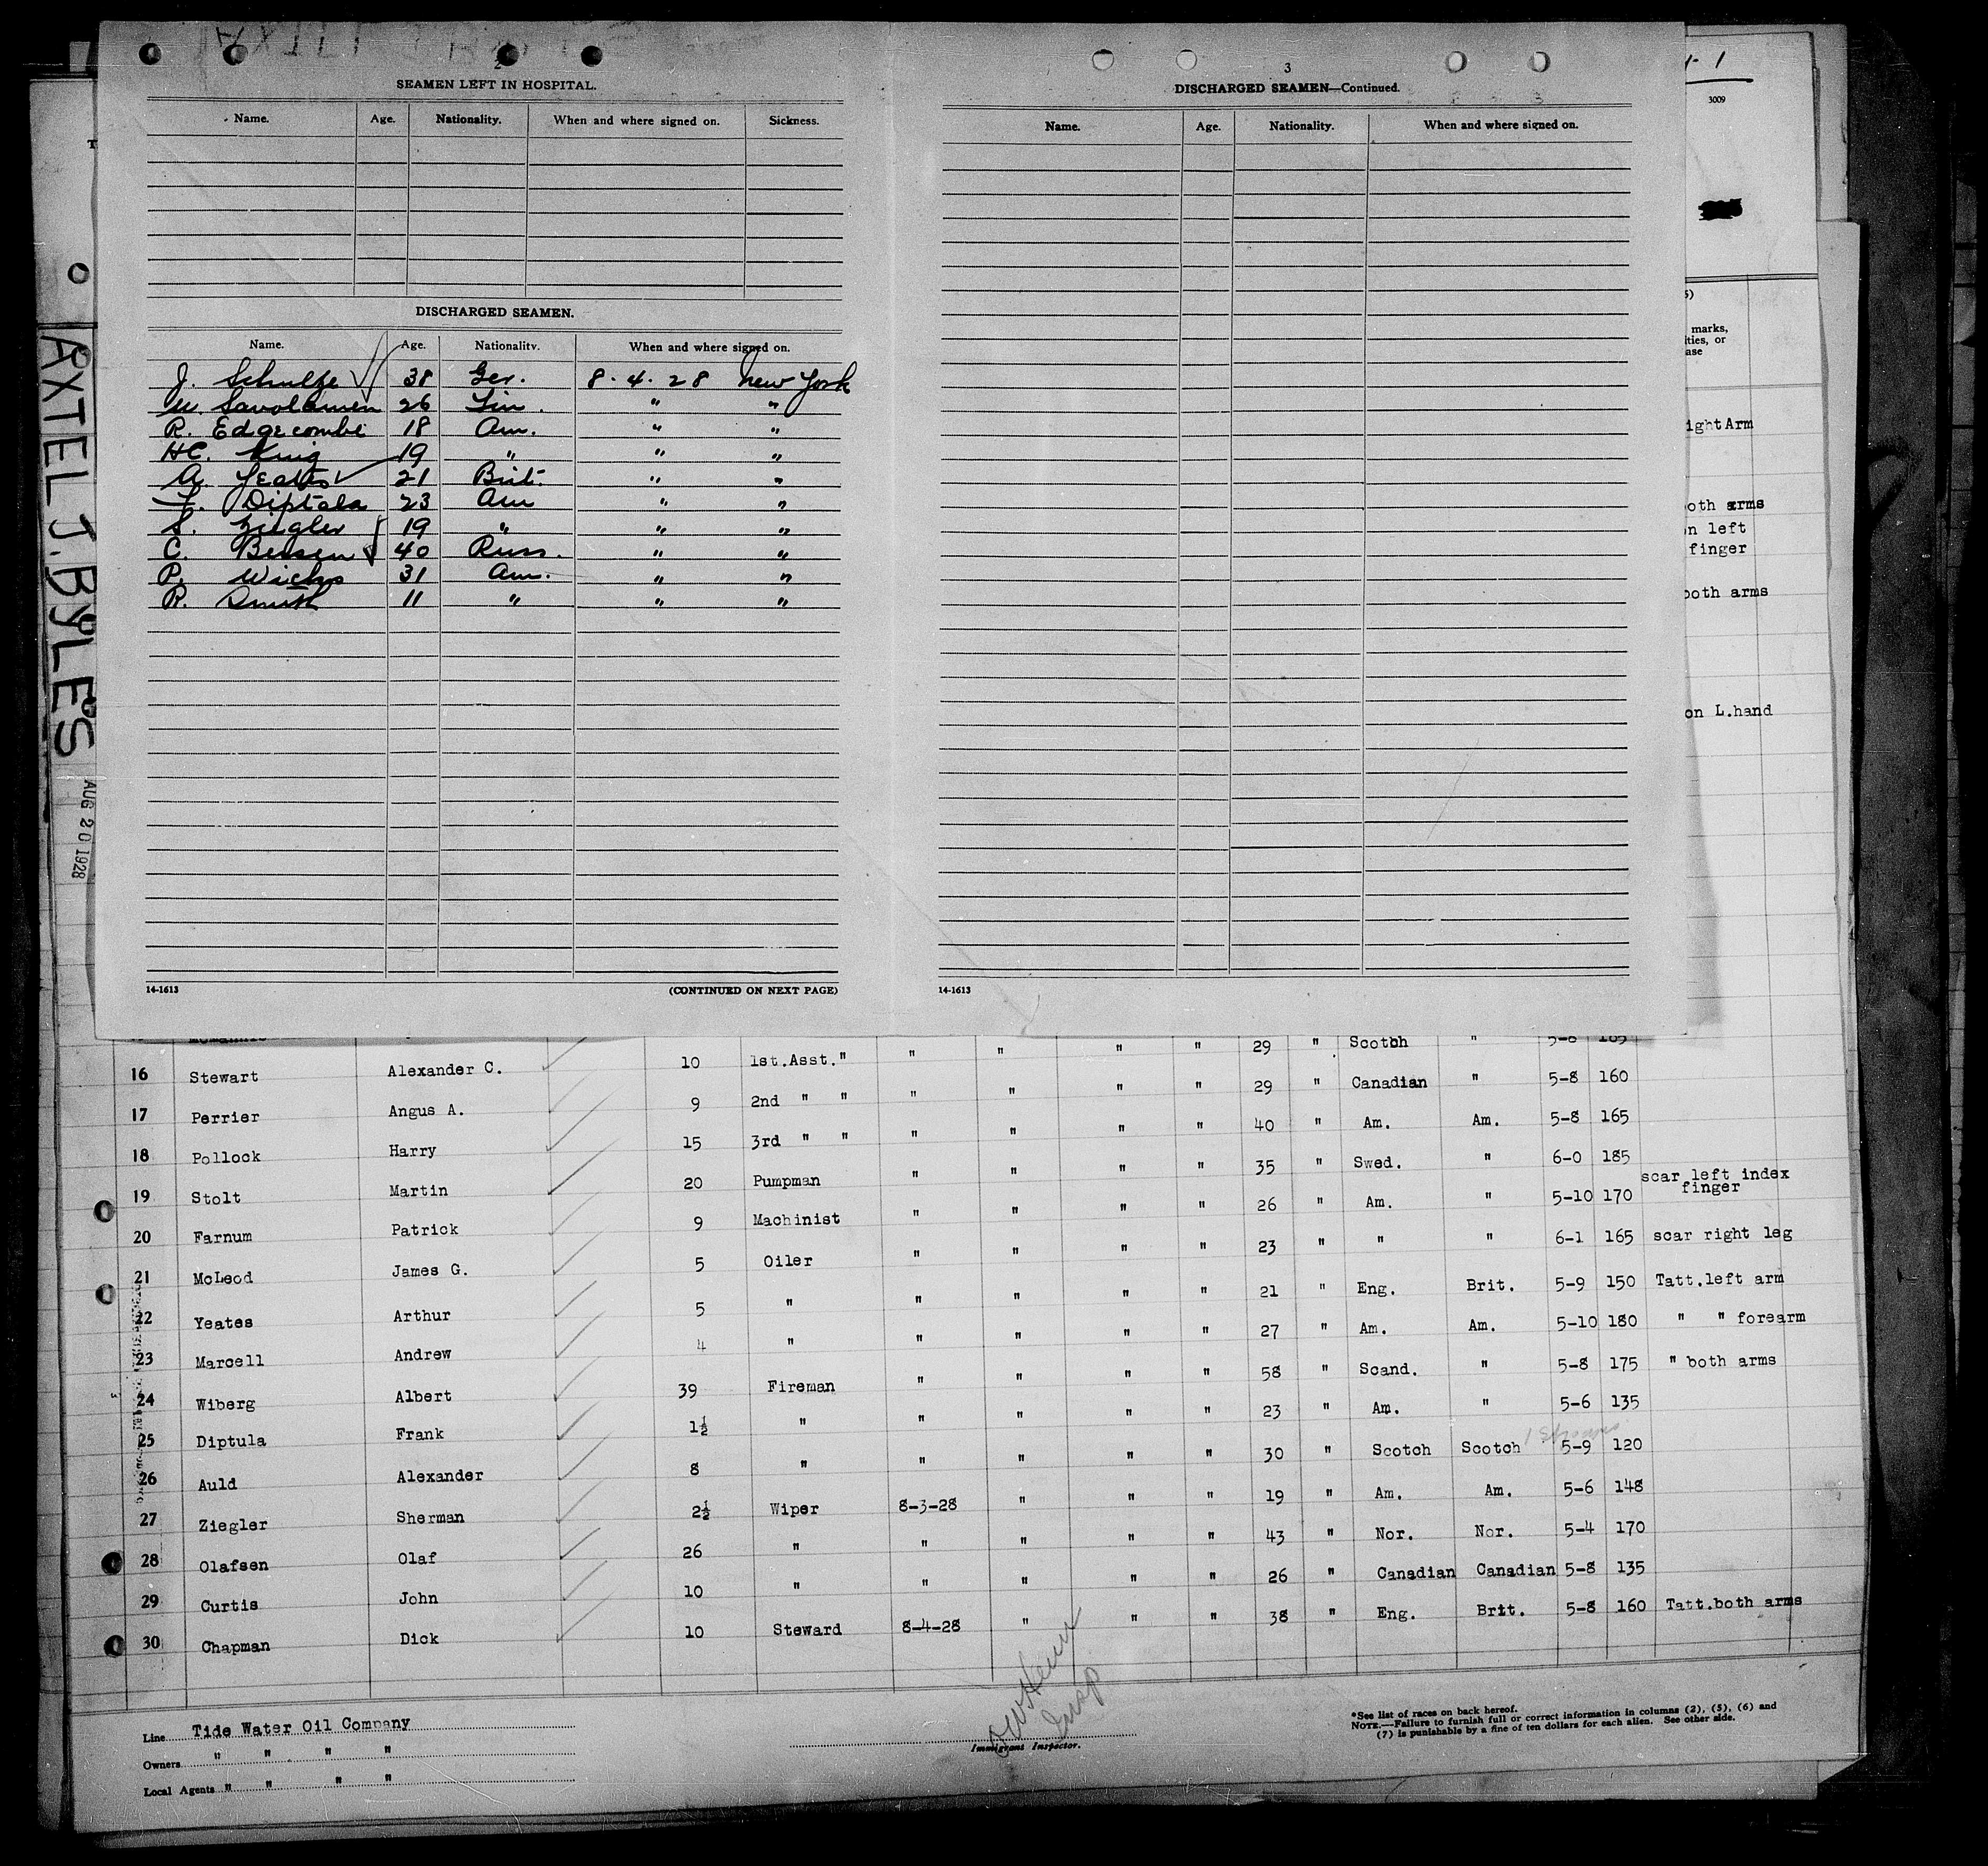 2
SEAMEN LEFT IN HOSPITAL.
Name. Age. Nationality. When and where signed on. Sickness.
DISCHARGED SEAMEN.
Name. Age. Nationality. When and where signed on.
J. Schulze 38 Ger. 8-4-28 New York
Savolainen 26 Fin. " "
R. Edgecombe 18 Am. " "
HC. King 19 " " "
A. Yeates 21 Brit. " "
F. Diptala 23 Am " "
S. Ziegler 19 " " "
C. Bensen 40 Russ. " "
P. Wicks 31 Am. " "
R. Smith 11 " " "
14-1613 (CONTINUED ON NEXT PAGE)
3
DISCHARGED SEAMEN—Continued.
Name. Age. Nationality. When and where signed on.
14-1613
3009
marks,
ities, or
ase
ight Arm
oth arms
n left
finger
both arms
on L.hand
AXTEL J. BYLES
AUG 20 1928
16 Stewart Alexander C. 10 1st.Asst." " " " " 29 " Scotch " 5-8 165
17 Perrier Angus A. 9 2nd " " " " " " 29 " Canadian " 5-8 160
18 Pollock Harry 15 3rd " " " " " " 40 " Am. Am. 5-8 165
19 Stolt Martin 20 Pumpman " " " " 35 " Swed. " 6-0 185
20 Farnum Patrick 9 Machinist " " " " 26 " Am. " 5-10 170 scar left index finger
21 McLeod James G. 5 Oiler " " " " 23 " " " 6-1 165 scar right leg
22 Yeates Arthur 5 " " " " " 21 " Eng. Brit. 5-9 150 Tatt.left arm
23 Marcell Andrew 4 " " " " " 27 " Am. Am. 5-10 180 " " forearm
24 Wiberg Albert 39 Fireman " " " " 58 " Scand. " 5-8 175 " both arms
25 Diptula Frank 1½ " " " " " 23 " Am. " 5-6 135
26 Auld Alexander 8 " " " " " 30 " Scotch Scotch 5-9 120
27 Ziegler Sherman 2½ Wiper 8-3-28 " " " 19 " Am. Am. 5-6 148
28 Olafsen Olaf 26 " " " " " 43 " Nor. Nor. 5-4 170
29 Curtis John 10 " " " " " 26 " Canadian Canadian 5-8 135
30 Chapman Dick 10 Steward 8-4-28 " " " 38 " Eng. Brit. 5-8 160 Tatt.both arms
Line Tide Water Oil Company
Owners " " " "
Local Agents " " " "
Insp
Immigrant Inspector.
*See list of races on back hereof.
NOTE.—Failure to furnish full or correct information in columns (2), (5), (6) and
(7) is punishable by a fine of ten dollars for each alien. See other side.